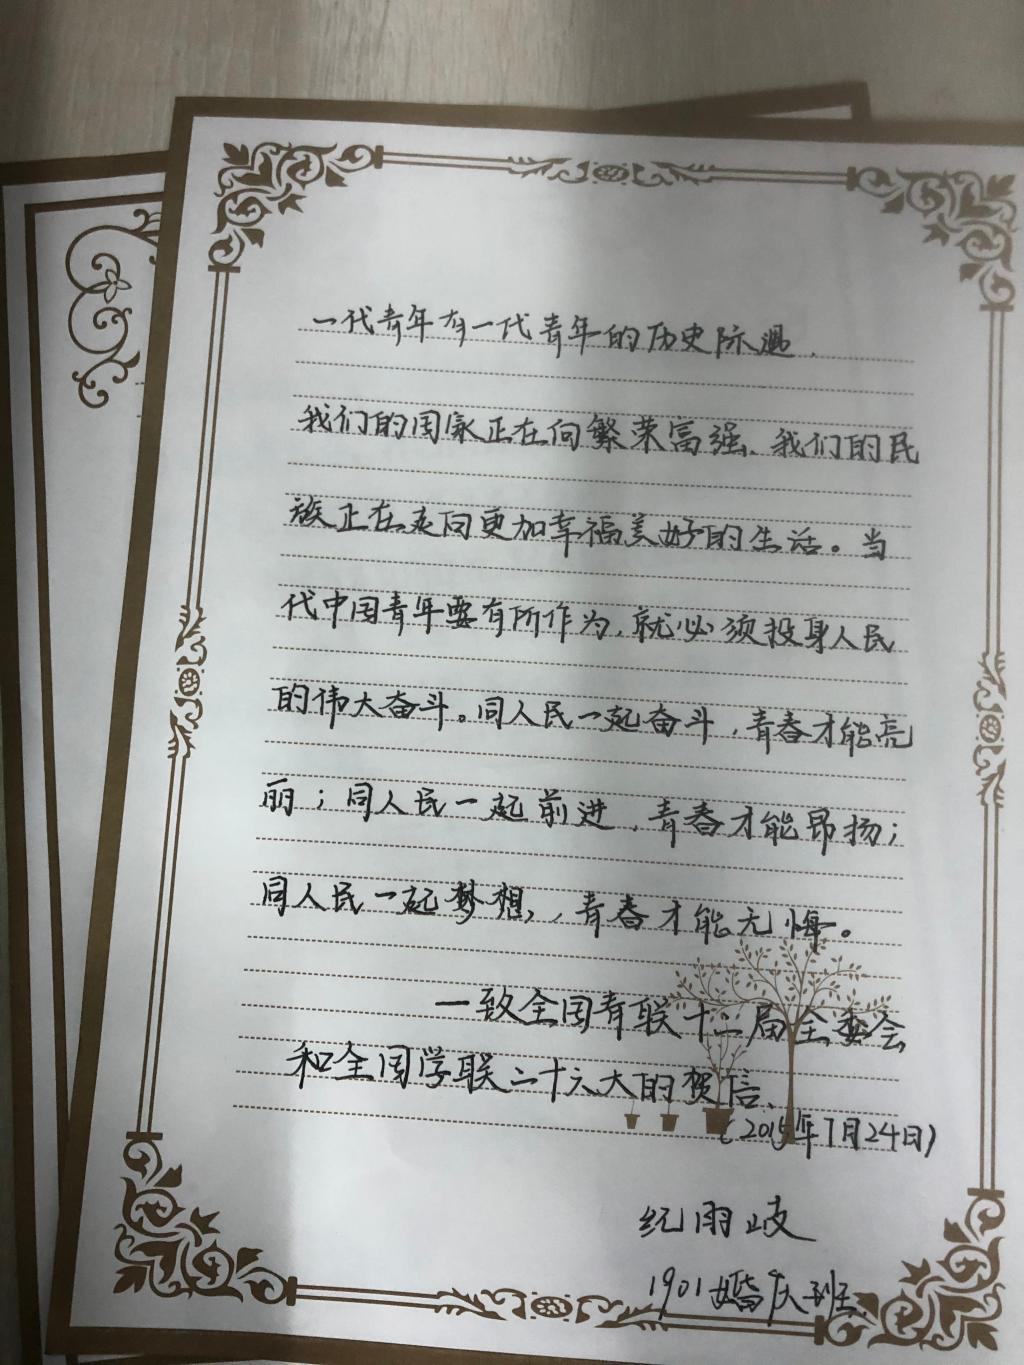 一代青年有一代青年的历史际遇.
我们的国家正在向繁荣富强、我们的民
族正在走向更加幸福美好的生活。当
代中国青年要有所作为,就必须投身人民
的伟大奋斗。同人民一起奋斗,青春才能亮
丽;同人民一起前进,青春才能昂扬;
同人民一起梦想,,青春才能无悔。
一致全国青联十二届全委会
和全国学联二十六大的贺信、
(2015年7月24日)
纪雨岐
1901婚庆班